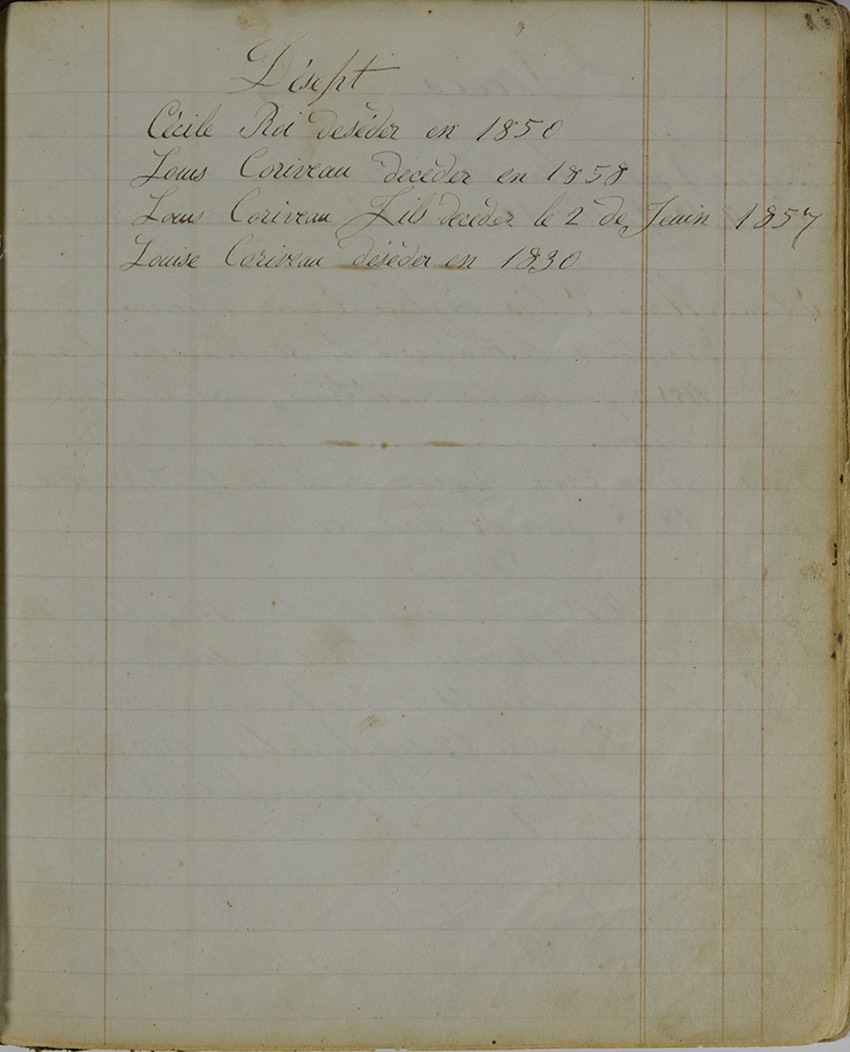 Désept
Cécile Roi deséder en 1850
Louis Coriveau deceder en 1858
Louis Coriveau Fils deceder le 2 de Jeuin 1857
Louise Coriveau déséder en 1830